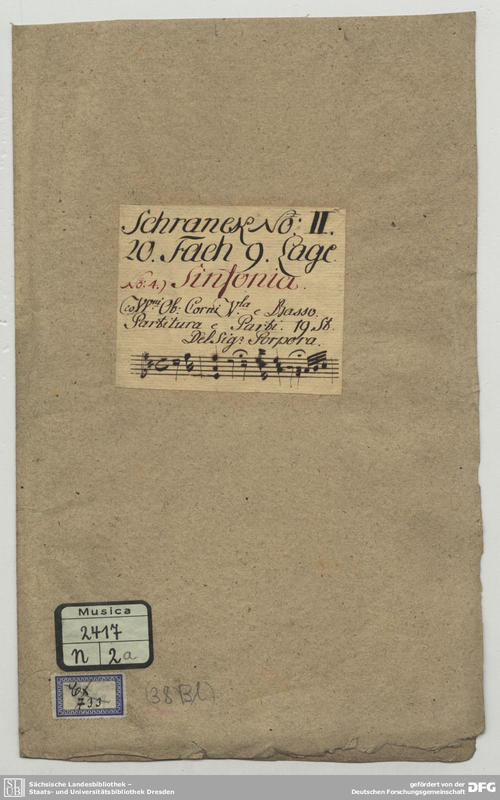 Schranck No: II.
20. Fach 9. Lage
No: 4.) Sinfonia.
co VVni Ob: Corni Vla e Basso.
Partitura e Parti. 19 St.
Del Sigr: Porpora.
Musica
2417
n 2a
(38 Bl)
SLUB
Sächsische Landesbibliothek –
Staats- und Universitätsbibliothek Dresden
gefördert von der
Deutschen Forschungsgemeinschaft
DFG